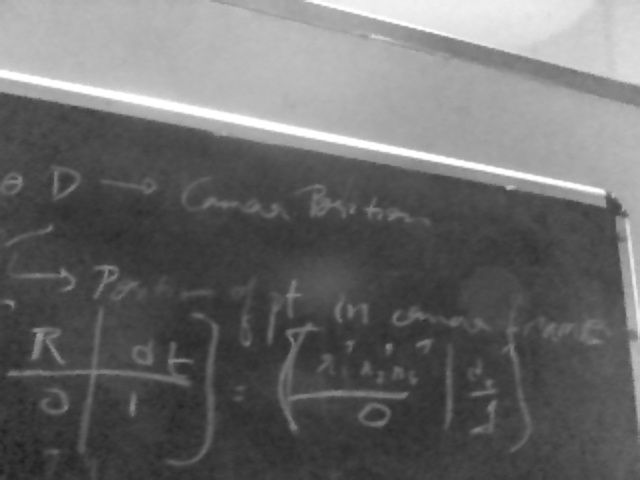 θ D → Camera Position
→ Position of pt in camera frame
R | dt
0 | 1
=
0 | 1